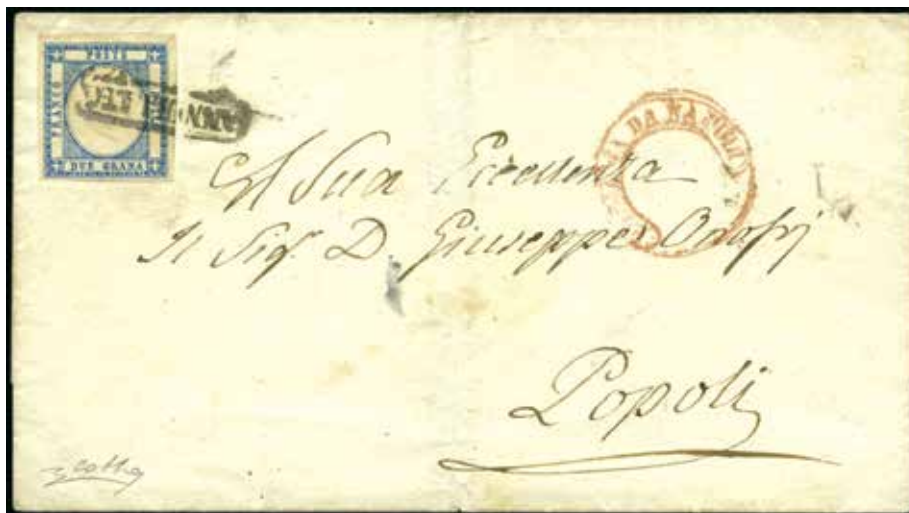 POSTE
FRANCO
DUE GRANA
ANNULLATO
DA NAPOLI
A Sua Eccellenza
Il Sigr. D. Giuseppe Onofrj
Popoli